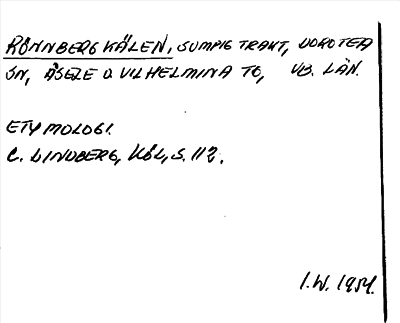 RÖNNBERGKÄLEN, SUMPIG TRAKT, DOROTEA
SN, ÅSELE O. VILHELMINA TG, VB. LÄN.
ETYMOLOGI.
C. LINDBERG, KÖL, S. 112.
I.W. 1954.